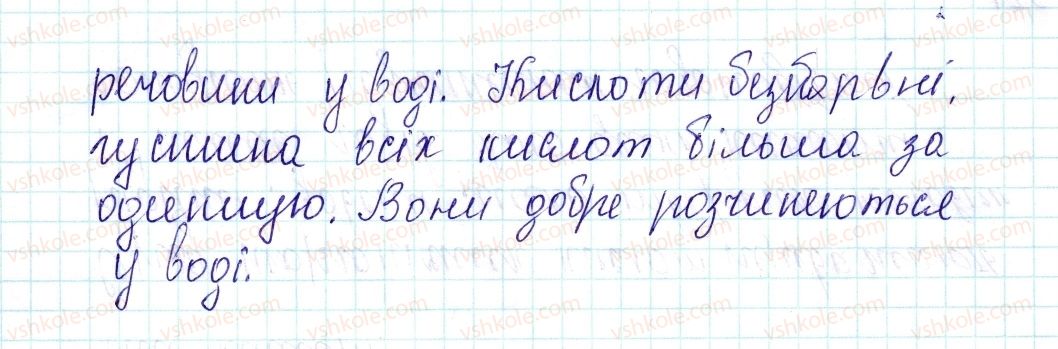 речовини у воді. Кислоти безбарвні,
густина всіх кислот більша за
одиницю. Вони добре розчиняються
у воді.